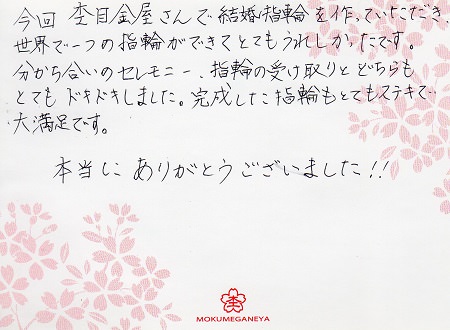 今回 杢目金屋さんで結婚指輪を作っていただき、
世界で一つの指輪ができてとてもうれしかったです。
分かち合いのセレモニー、指輪の受け取りとどちらも
とても ドキドキしました。完成した指輪もとてもステキで
大満足です。
本当に ありがとうございました!!
杢
MOKUMEGANEYA